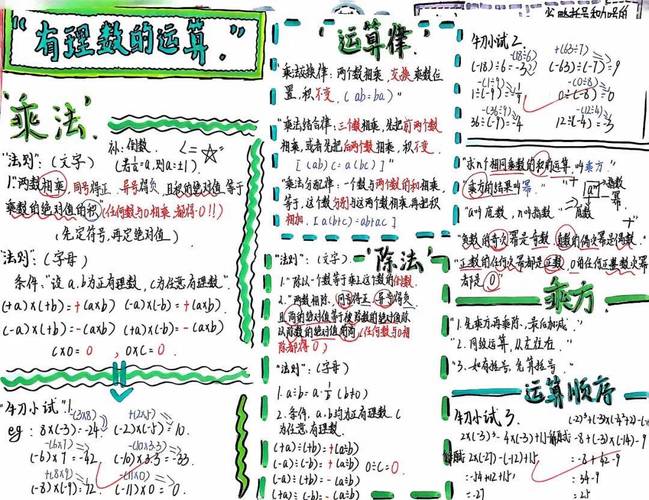 "有理数的运算."
乘法
补:倒数
(若a=a,则a=±1).
"法则":(文字)
1."两数相乘,同号得正,异号得负,且积的绝对值等于
乘数的绝对值的积(任何数与0相乘,都得0!!)
(先定符号,再定绝对值)
"法则":(字母)
条件."设a.b为正有理数,c为任意有理数".
(+a)×(+b)=+(a×b) (-a)×(-b)=+(a×b)
(-a)×(+b)=-(a×b) (+a)×(-b)=-(a×b)
c×0=0 , 0×c=0.
"牛刀小试"1.
-(3×8) +(2×5)
eg: 8×(-3)=-24. (-2)×(-5)=10.
-(6×7) -(10×3.3)
(-6)×7=-42 (-10)×3.3=-33.
+(8×9) -(11×0)
(-8)×(-9)=72. (-11)×0=0.
"运算律."
乘法交换律:两个数相乘,交换乘数位
置,积不变.(ab=ba)"
"乘法结合律:三个数相乘,先把前两个数
相乘,或者先把后两个数相乘,积不变.
[(ab)c=a(bc)]"
"乘法分配律:一个数与两个数的和相乘,
等于,这个数分别与这两个数相乘,再把积
相加.[a(b+c)=ab+ac]
"除法"
"法则":(文字)
1."除以一个数等于乘上这个数的倒数.
2."两数相除,同号得正,异号得负,
且商的绝对值等于被除数的绝对值除
以除数的绝对值的商.(任何数与0相
除都得0)
"法则":(字母)
1.a÷b=a·1/b(b≠0)
2.条件:a.b均为正有理数.c
为任意有理数.
(+a)÷(+b)=+(a÷b)
(-a)÷(-b)=+(a÷b) 0÷c=0.
(-a)÷(+b)=-(a÷b)
(+a)÷(-b)=-(a÷b)
牛刀小试2:
-(18÷6) +(63÷7)
(-18)÷6=-3 (-63)÷(-7)=9
-(1÷9) (0÷8)
1÷(-9)=-1/9 0÷(-8)=0
-(36÷9) -(12÷4)
36÷(-9)=-4 12÷(-4)=-3
"求n个相同乘数的积的运算,叫乘方."
"乘方的结果叫幂."
指数
"a叫底数,n叫指数."
底数
"负数的奇次幂是负数,负数的偶次幂是正数."
"正数的任何次幂都是正数,0的任何正整数次幂
都是0"
乘方
"1.先乘方再乘除,最后加减."
"2.同级运算,从左往右."
"3.如有括号,先算括号."
运算顺序
牛刀小试3.
2×(-3)³-4×(-3)+15
2×(-27)-(-12)+15 =-8+(-3)×(14)-9
-8-42-9